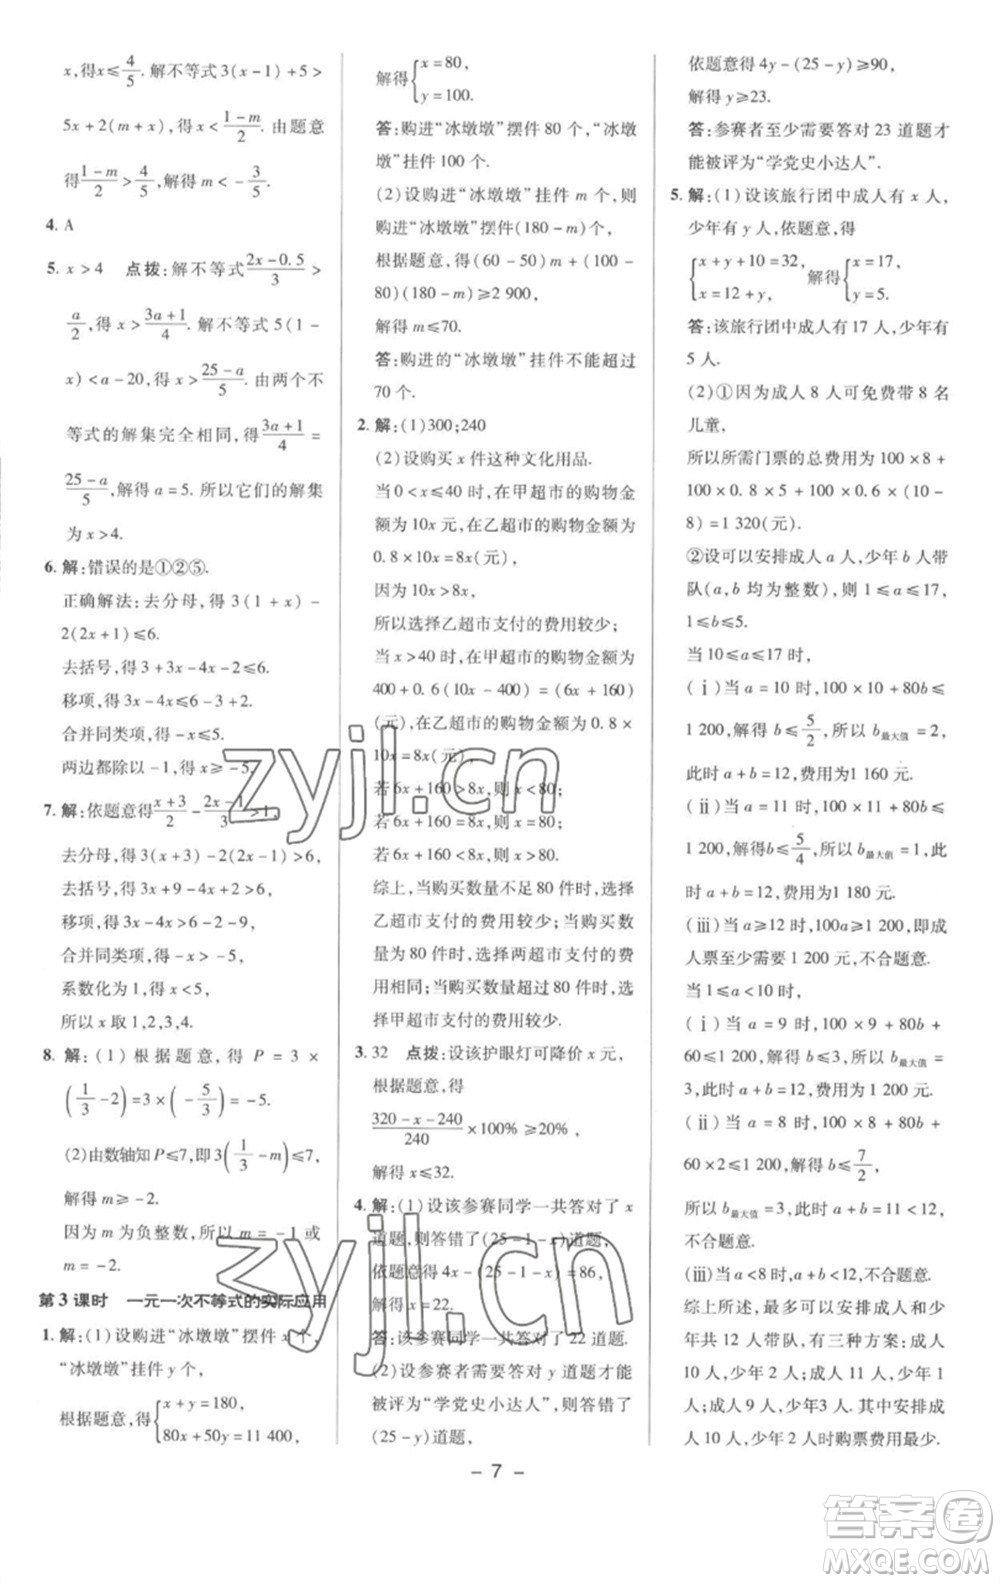 x,得x≤4/5. 解不等式3(x-1)+5>
5x+2(m+x),得x<(1-m)/2. 由题意
得(1-m)/2>4/5,解得m<-3/5.
4. A
5. x>4 点拨:解不等式(2x-0.5)/3>
a/2,得x>(3a+1)/4. 解不等式5(1-
x)<a-20,得x>(25-a)/5. 由两个不
等式的解集完全相同,得(3a+1)/4=
(25-a)/5,解得a=5. 所以它们的解集
为x>4.
6. 解:错误的是①②⑤.
正确解法:去分母,得3(1+x)-
2(2x+1)≤6.
去括号,得3+3x-4x-2≤6.
移项,得3x-4x≤6-3+2.
合并同类项,得-x≤5.
两边都除以-1,得x≥-5.
7. 解:依题意得(x+3)/2-(2x-1)/3>1,
去分母,得3(x+3)-2(2x-1)>6,
去括号,得3x+9-4x+2>6,
移项,得3x-4x>6-2-9,
合并同类项,得-x>-5,
系数化为1,得x<5,
所以x取1,2,3,4.
8. 解:(1)根据题意,得P=3×
(1/3-2)=3×(-5/3)=-5.
(2)由数轴知P≤7,即3(1/3-m)≤7,
解得m≥-2.
因为m为负整数,所以m=-1或
m=-2.
第3课时 一元一次不等式的实际应用
1. 解:(1)设购进“冰墩墩”摆件x个,
“冰墩墩”挂件y个,
根据题意,得{x+y=180,
80x+50y=11 400,
解得{x=80,
y=100.
答:购进“冰墩墩”摆件80个,“冰墩
墩”挂件100个.
(2)设购进“冰墩墩”挂件m个,则
购进“冰墩墩”摆件(180-m)个,
根据题意,得(60-50)m+(100-
80)(180-m)≥2 900,
解得m≤70.
答:购进的“冰墩墩”挂件不能超过
70个.
2. 解:(1)300;240
(2)设购买x件这种文化用品.
当0<x≤40时,在甲超市的购物金
额为10x元,在乙超市的购物金额为
0.8×10x=8x(元),
因为10x>8x,
所以选择乙超市支付的费用较少;
当x>40时,在甲超市的购物金额为
400+0.6(10x-400)=(6x+160)
(元),在乙超市的购物金额为0.8×
10x=8x(元),
若6x+160>8x,则x<80;
若6x+160=8x,则x=80;
若6x+160<8x,则x>80.
综上,当购买数量不足80件时,选择
乙超市支付的费用较少;当购买数
量为80件时,选择两超市支付的费
用相同;当购买数量超过80件时,选
择甲超市支付的费用较少.
3. 32 点拨:设该护眼灯可降价x元,
根据题意,得
(320-x-240)/240×100%≥20%,
解得x≤32.
4. 解:(1)设该参赛同学一共答对了x
道题,则答错了(25-1-x)道题,
依题意得4x-(25-1-x)=86,
解得x=22.
答:该参赛同学一共答对了22道题.
(2)设参赛者需要答对y道题才能
被评为“学党史小达人”,则答错了
(25-y)道题,
依题意得4y-(25-y)≥90,
解得y≥23.
答:参赛者至少需要答对23道题才
能被评为“学党史小达人”.
5. 解:(1)设该旅行团中成人有x人,
少年有y人,依题意,得
{x+y+10=32,
x=12+y, 解得{x=17,
y=5.
答:该旅行团中成人有17人,少年有
5人.
(2)①因为成人8人可免费带8名
儿童,
所以所需门票的总费用为100×8+
100×0.8×5+100×0.6×(10-
8)=1 320(元).
②设可以安排成人a人,少年b人带
队(a,b均为整数),则1≤a≤17,
1≤b≤5.
当10≤a≤17时,
(ⅰ)当a=10时,100×10+80b≤
1 200,解得b≤5/2,所以b最大值=2,
此时a+b=12,费用为1 160元.
(ⅱ)当a=11时,100×11+80b≤
1 200,解得b≤5/4,所以b最大值=1,此
时a+b=12,费用为1 180元.
(ⅲ)当a≥12时,100a≥1 200,即成
人票至少需要1 200元,不合题意.
当1≤a<10时,
(ⅰ)当a=9时,100×9+80b+
60≤1 200,解得b≤3,所以b最大值=
3,此时a+b=12,费用为1 200元.
(ⅱ)当a=8时,100×8+80b+
60×2≤1 200,解得b≤7/2,
所以b最大值=3,此时a+b=11<12,
不合题意.
(ⅲ)当a<8时,a+b<12,不合题意.
综上所述,最多可以安排成人和少
年共12人带队,有三种方案:成人
10人,少年2人;成人11人,少年
1人;成人9人,少年3人,其中安排
成人10人,少年2人时购票费用最少.
- 7 -
zyjl.cn
zyjl.cn
答案圈
MXQE.COM